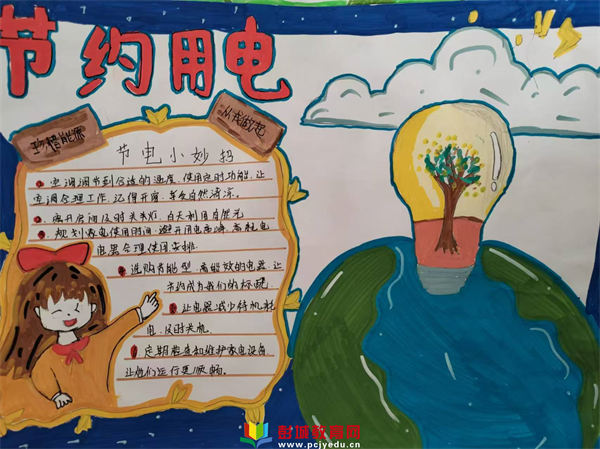 节约用电
珍惜能源
从我做起
节电小妙招
空调调节到合适的温度,使用定时功能,让
空调合理工作,记得开窗,享受自然清凉。
离开房间及时关灯,白天利用自然光
规划家电使用时间,避开用电高峰,高耗电
电器合理使用安排
选购节能型,高能效的电器,让
节约成为我们的标配
让电器减少待机耗
电,及时关机。
定期检查和维护家电设备,
让他们运行更顺畅。
彭城教育网
www.pcjyedu.cn